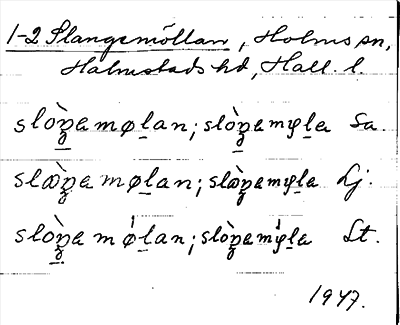 1-2 Slangemöllan, Holms sn,
Halmstads hd, Hall. l.
slòŋ̱a møḻan; slòŋ̱a mφḻa Sa.
slæ̀ŋ̱a møḻan; slæ̀ŋ̱a mφḻa Lj.
slòŋ̱a mø̍ḻan; slòŋ̱a mφ̍ḻa Lt.
1947.